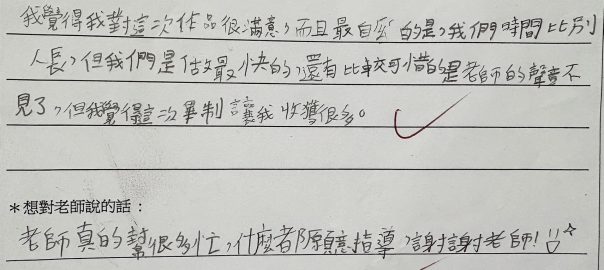 我覺得我對這次作品很滿意,而且最自豪的是,我們時間比別
人長,但我們是做最快的,還有比較可惜的是老師的聲音不
見了,但我覺得這次畢制讓我收獲很多。
＊想對老師說的話：
老師真的幫很多忙,什麼都願意指導,謝謝老師!